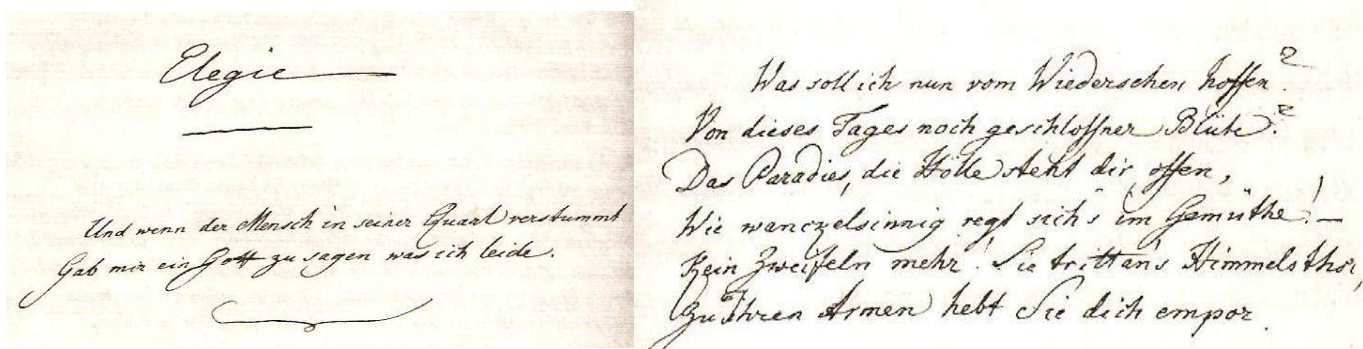 Elegie
Und wenn der Mensch in seiner Quaal verstummt
Gab mir ein Gott zu sagen was ich leide.
Was soll ich nun vom Wiedersehen hoffen?
Von dieses Tages noch geschlossner Blüte?
Das Paradies, die Hölle steht dir offen,
Wie wanckelsinnig regt sich's im Gemüthe! –
Kein Zweifeln mehr! Sie tritt an's Himmelsthor,
Zu Ihren Armen hebt Sie dich empor.